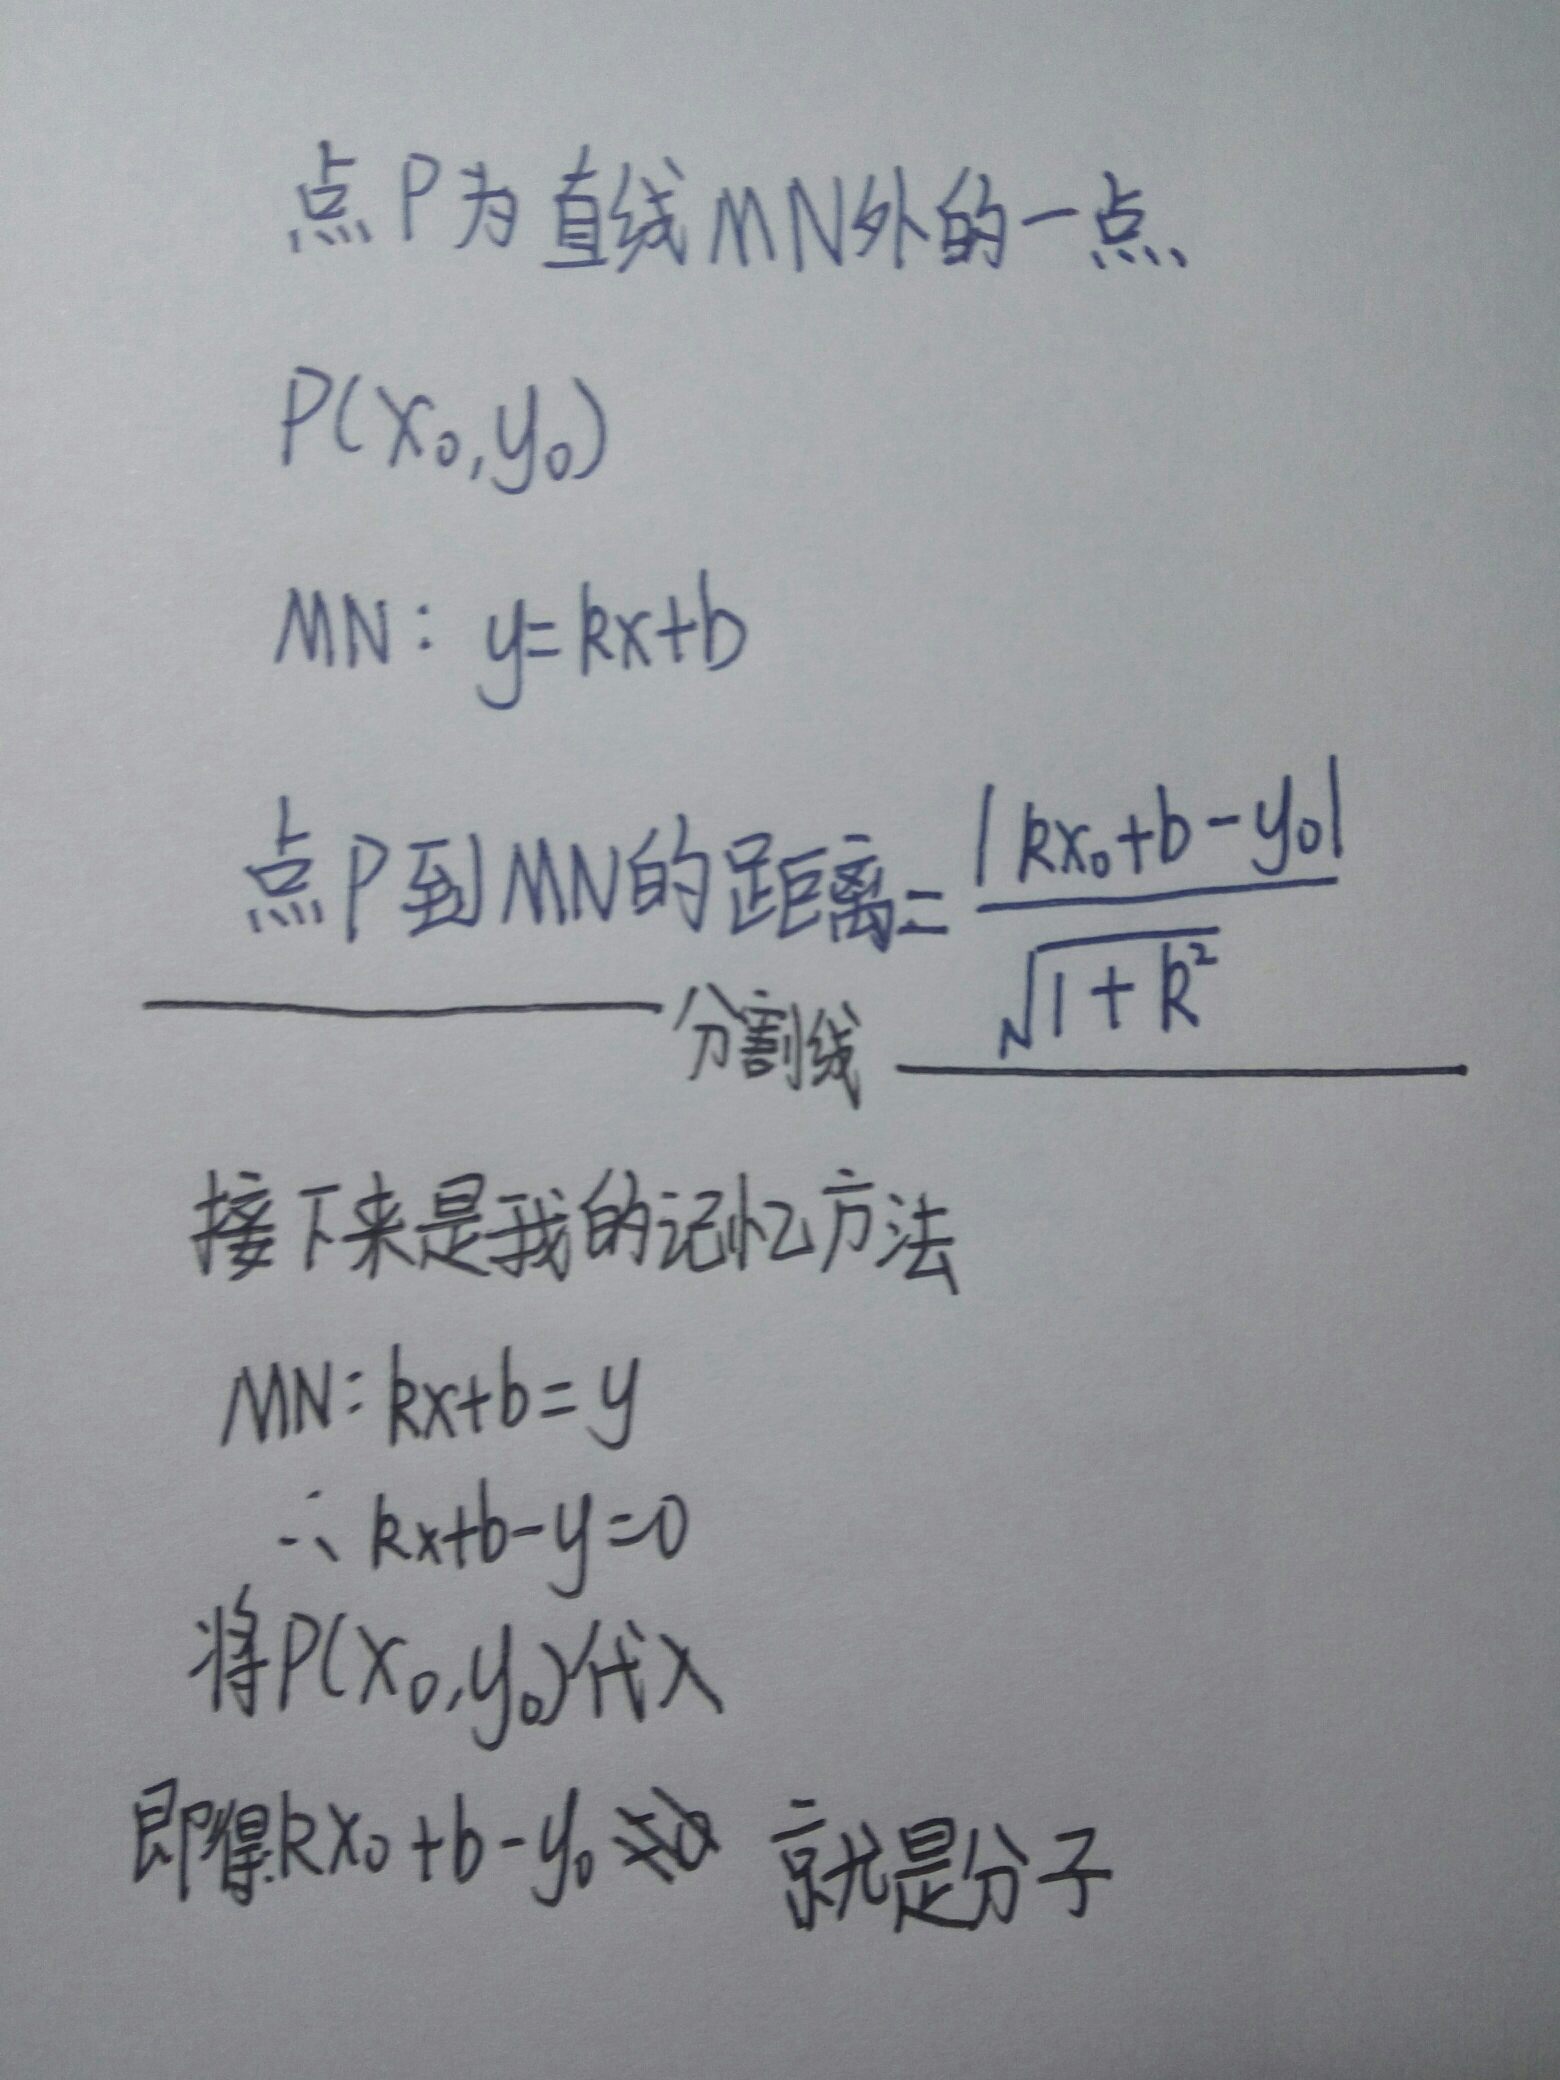 点P为直线MN外的一点
P(x₀,y₀)
MN: y=kx+b
点P到MN的距离=|kx₀+b-y₀|/√1+k²
分割线
接下来是我的记忆方法
MN:kx+b=y
∴kx+b-y=0
将P(x₀,y₀)代入
即得kx₀+b-y₀ 就是分子